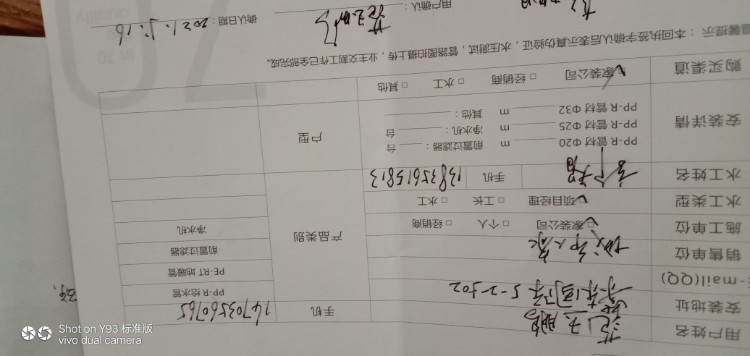 用户姓名 手机 14703560765
安装地址 5-2-502 PP-R 给水管
E-mail(QQ) PE-RT 地暖管
销售单位 产品类别 前置过滤器
施工单位 家装公司 □ 个人 □ 经销商 净水机
水工类型 项目经理 □ 工长 □ 水工
水工姓名 手机 13835615813
安装详情 PP-R 管材 Φ20 m 前置过滤器: 台 户型
PP-R 管材 Φ25 m 净水机: 台
PP-R 管材 Φ32 m 其他:
购买渠道 家装公司 □ 经销商 □ 水工 □ 其他
温馨提示:本回执签字确认后表示真伪验证,水压测试,管路图拍摄上传,业主交底工作已全部完成。
用户确认: 确认日期:2021.5.16
Shot on Y93 标准版
vivo dual camera